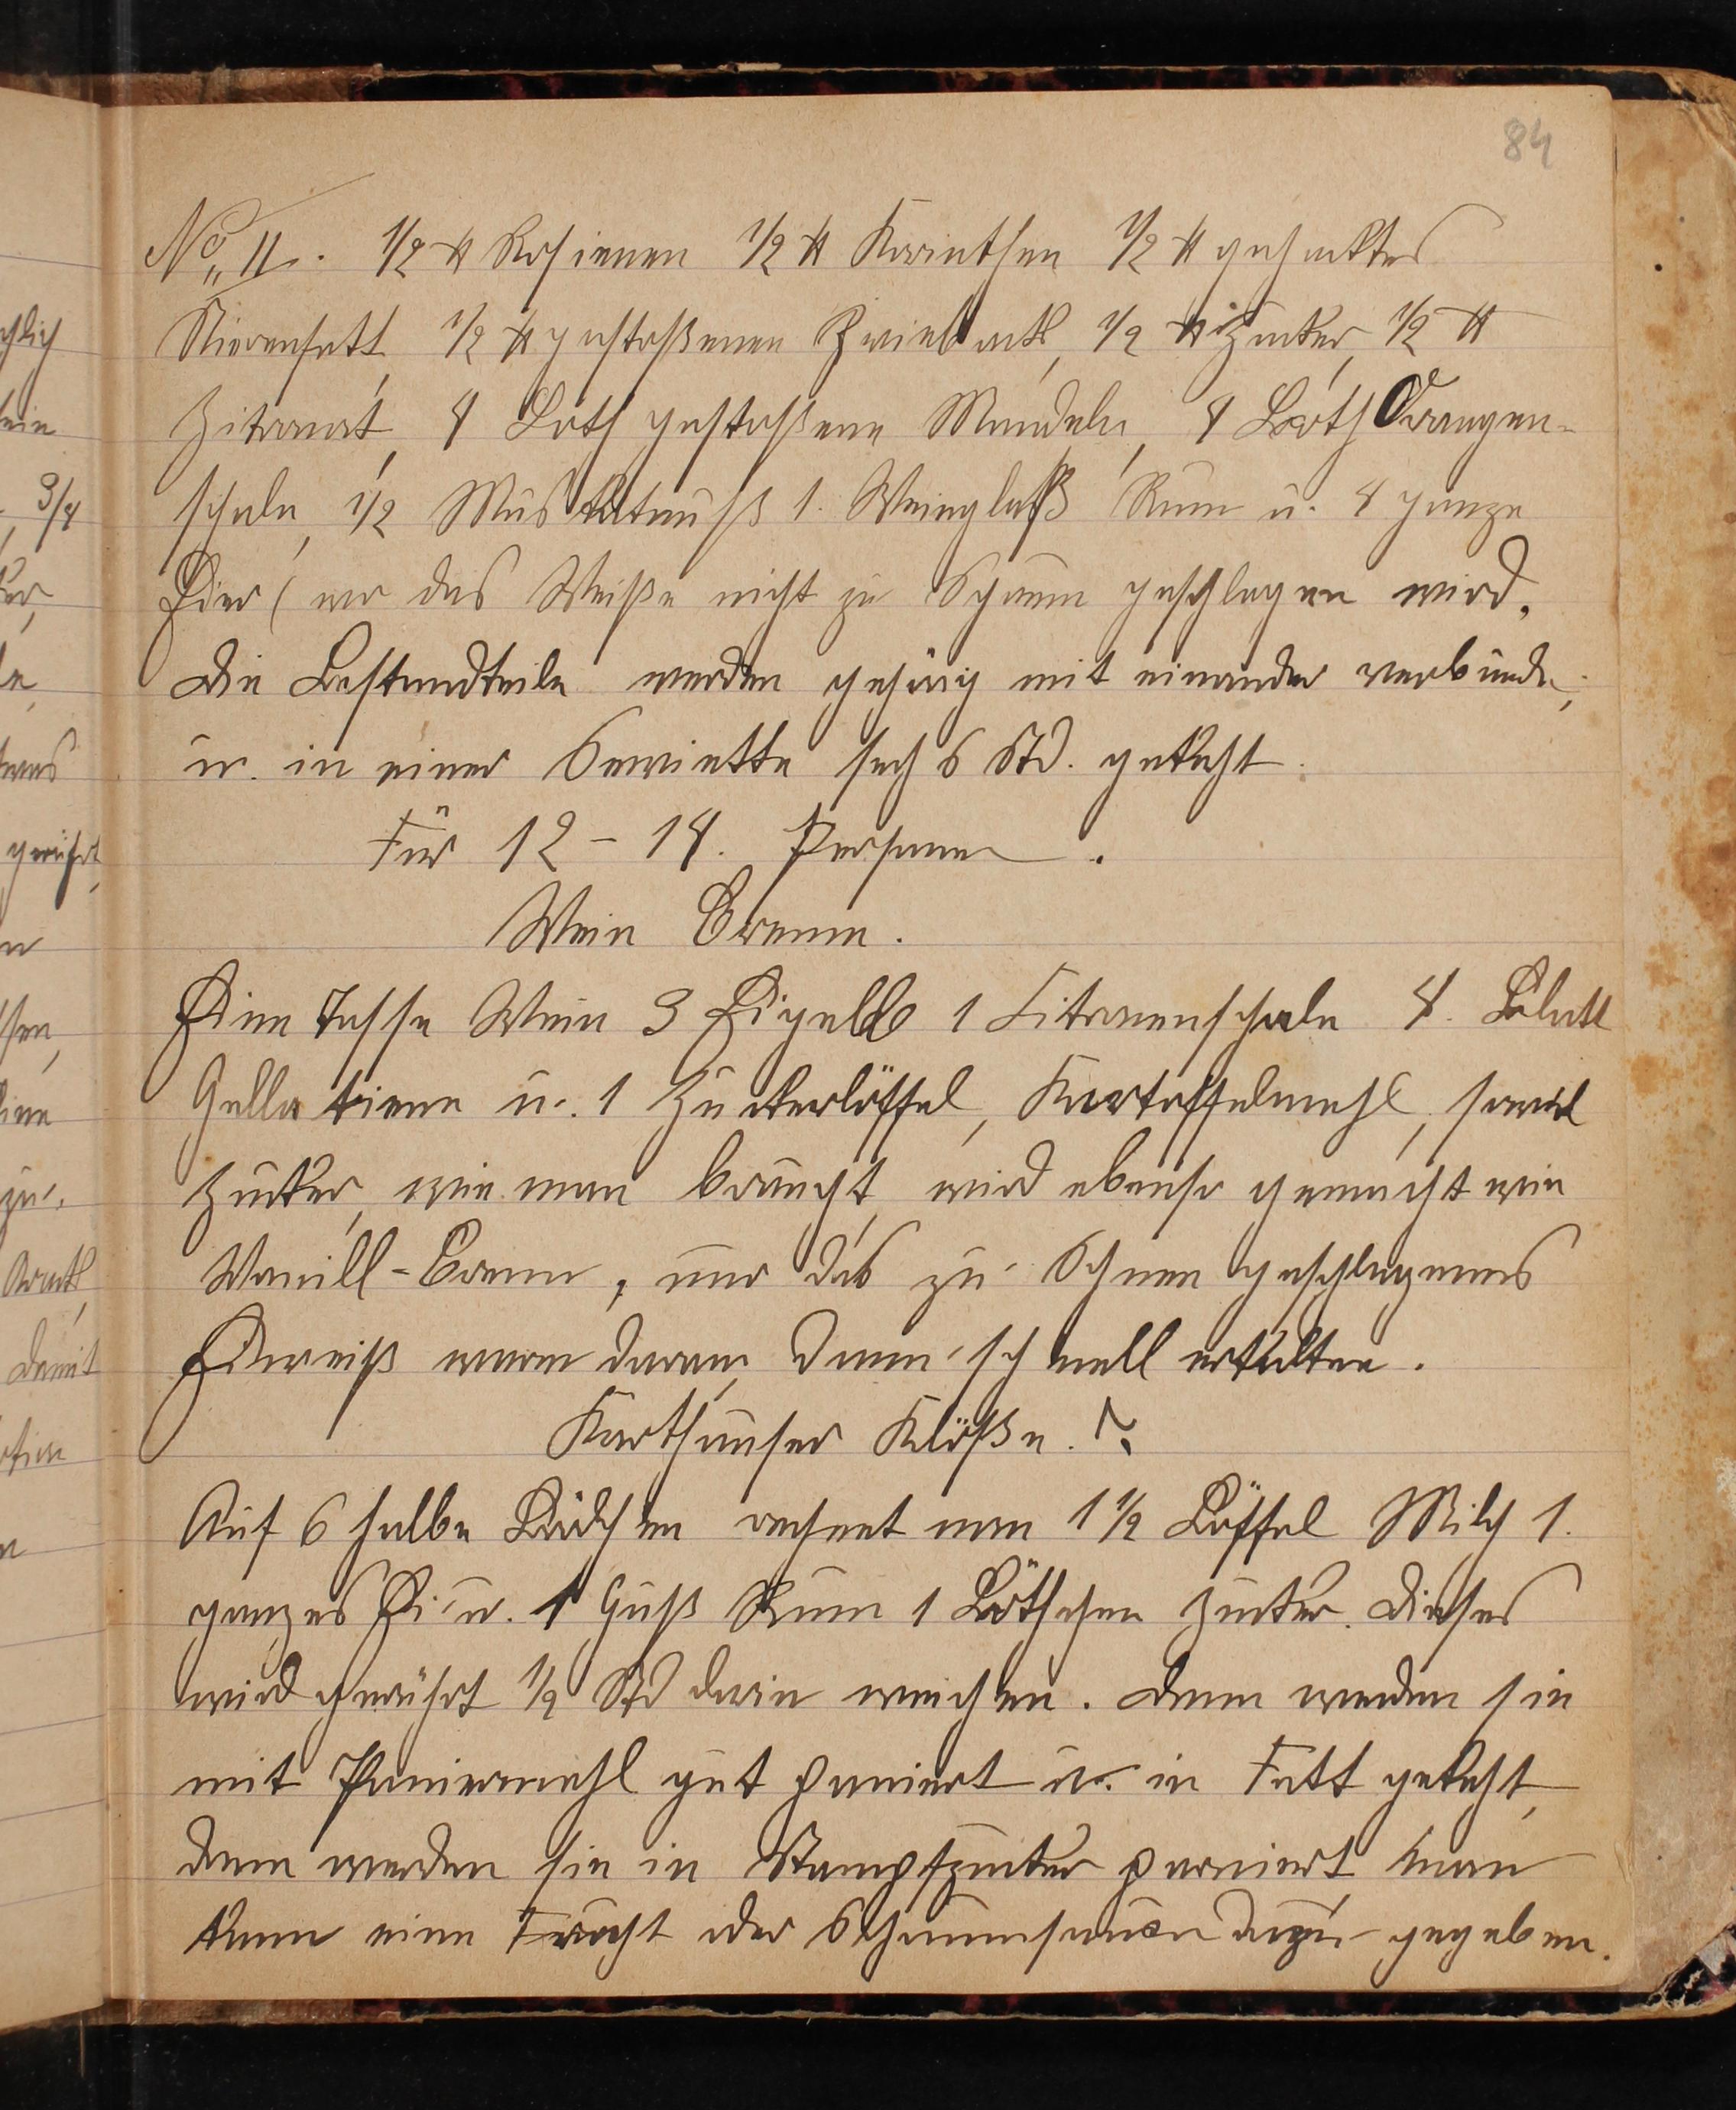 84
No. II. 1/2 ℔ Rosienen 1/2 ℔ Korinthen 1/2 ℔ gehacktes
Nierenfett, 1/2 ℔ gestoßenen Zwieback, 1/2 ℔ Zucker, 1/2 ℔
Zitronat, 4 Loth gestoßene Mandeln, 4 Loth Orangen-
schale, 1/2 Muskatnuß 1. Weinglaß Rum u. 4 ganze
Eier (wo das Weiße nicht zu Schaum geschlagen wird.
Die Bestandteile werden gehörig mit einander verbunde,
u. in einer Serviette sechs Std. gekocht.
Für 12 - 14. Personen.
Wein Creme.
Eine Tasse Wein 3 Eigelb 1 Citronenschale 4. Blatt
Gellatiene u. 1 Zuckerlöffel, Kartoffelmehl, soviel
Zucker, wie man braucht, wird ebenso gemacht wie
Vanill-Creme, nur das zu Schnee geschlagenes
Eierweiß warm daran, dann schnell erkalten.
Karthäuser Klöße.
Auf 6 halbe Brödchen rechnet man 1 1/2 Löffel Milch 1.
ganzes Ei u. 1 Guß Rum 1 Löthchen Zucker. Dieses
wird gerührt 1/2 Std darin weichen. Dann werden sie
mit Paniermehl gut paniert u. in Fett gekocht,
dann werden sie in Stampfzucker paniert man
kann eine Frucht oder Schaumsauce dazu gegeben.
chlich
3/4
gerührt,
damit